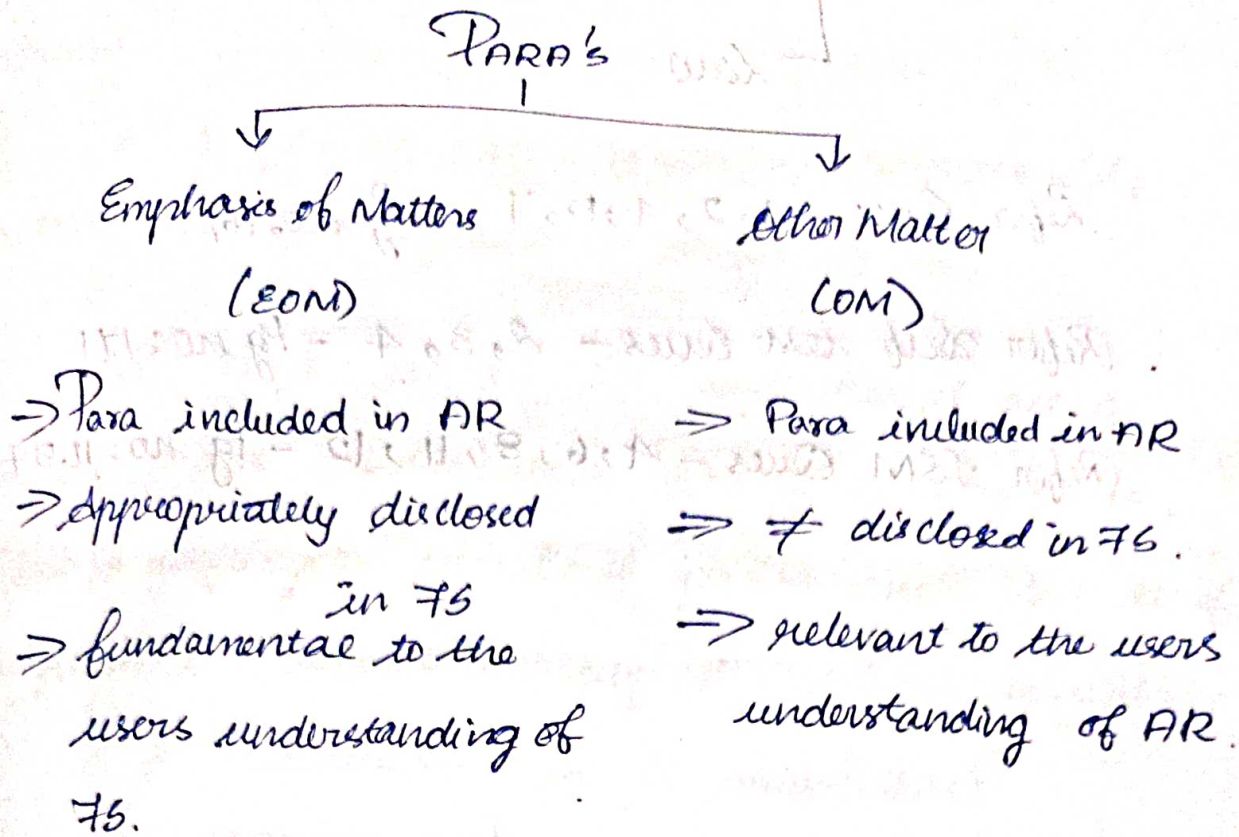 PARA's
Emphasis of Matters
(EOM)
=> Para included in AR
=> Appropriately disclosed
in FS
=> fundamental to the
users understanding of
FS.
Other Matter
(OM)
=> Para included in AR
=> ≠ disclosed in FS.
=> relevant to the users
understanding of AR.